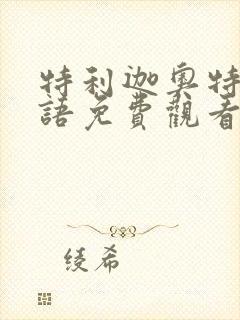 特利迦奧特
語免費觀看
绫希